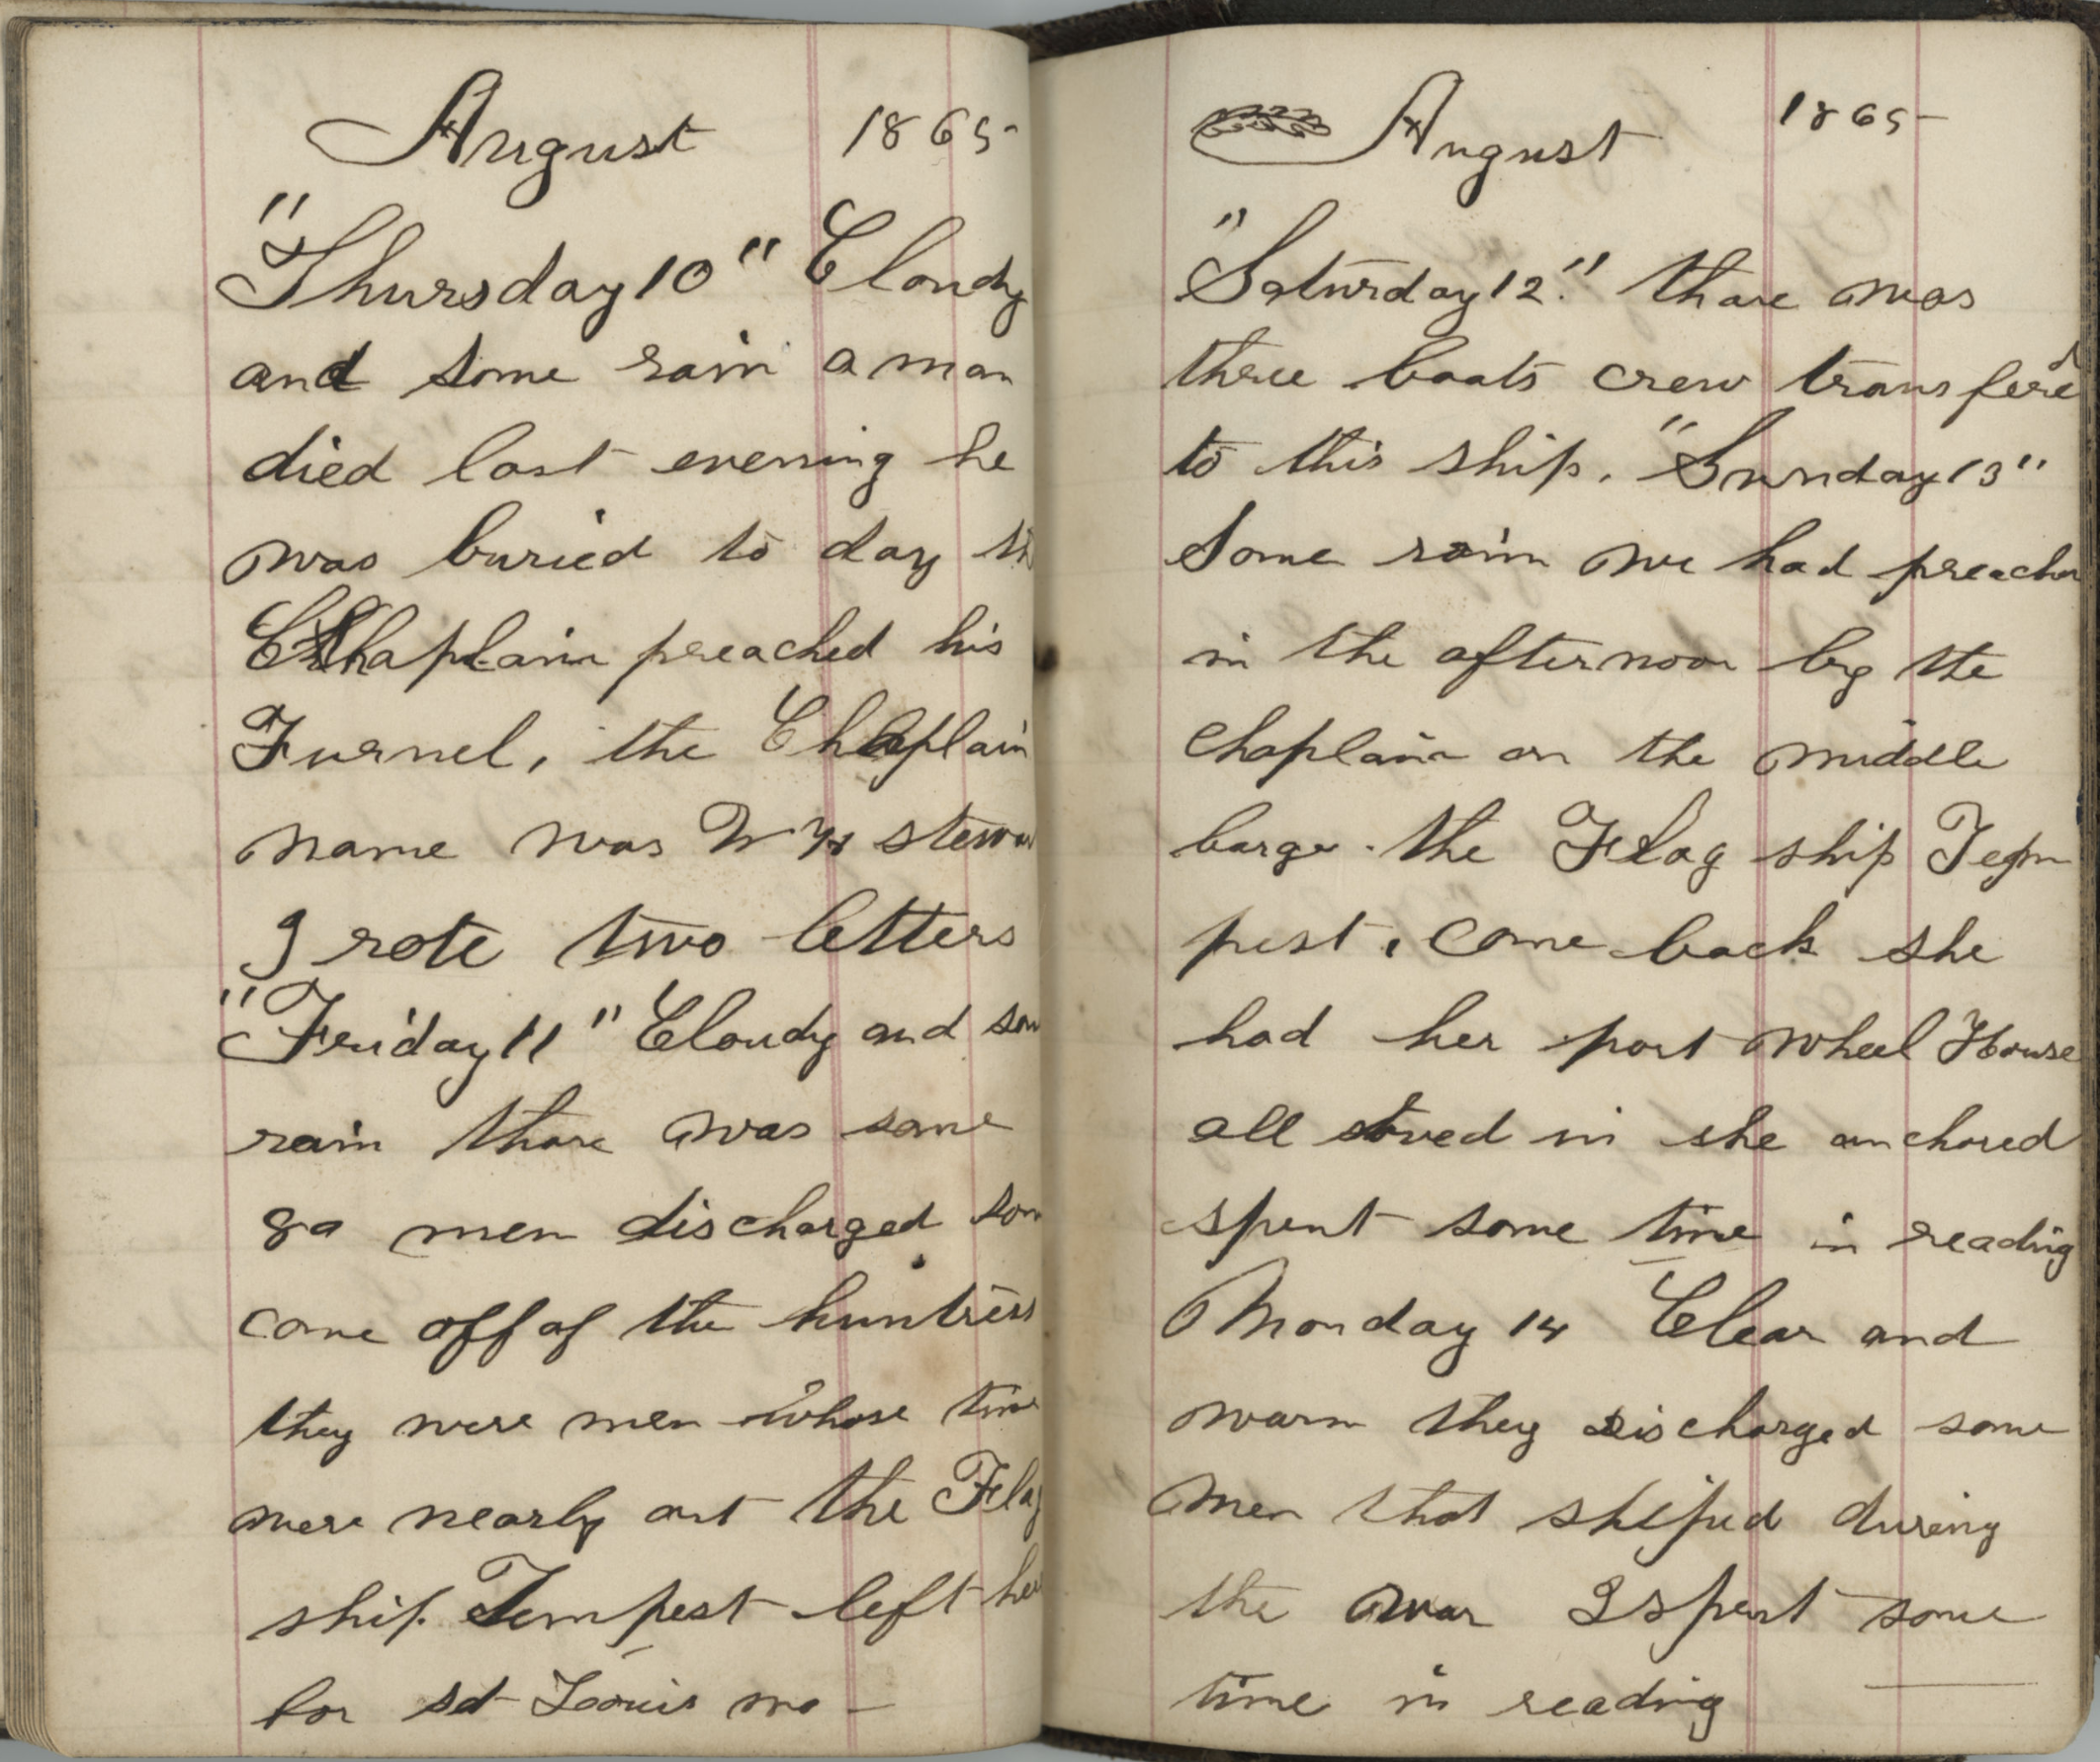 August 1865-
"Thursday 10" Cloudy
and some rain a man
died last evening he
was buried to day th
Chaplain preached his
Furnel, the Chaplain
name was W H stewa
I rote two letters
"Friday 11" Cloudy and som
rain thare was some
men discharged som
come off of the huntress
they were men whose time
were nearly out the Flag
ship Tempest left her
for st Louis mo -
August 1865-
"Saturday 12." thare was
three boats crew transfered
to this ship. "Sunday 13"
Some rain we had preachn
in the afternoon by the
chaplain on the middle
barge. the Flag ship Tem
pest, come back she
had her port wheel House
all stoved in she anchored
spent some time in reading
Monday 14 Clear and
warm they discharged some
men that shiped during
the war I spent some
time in reading